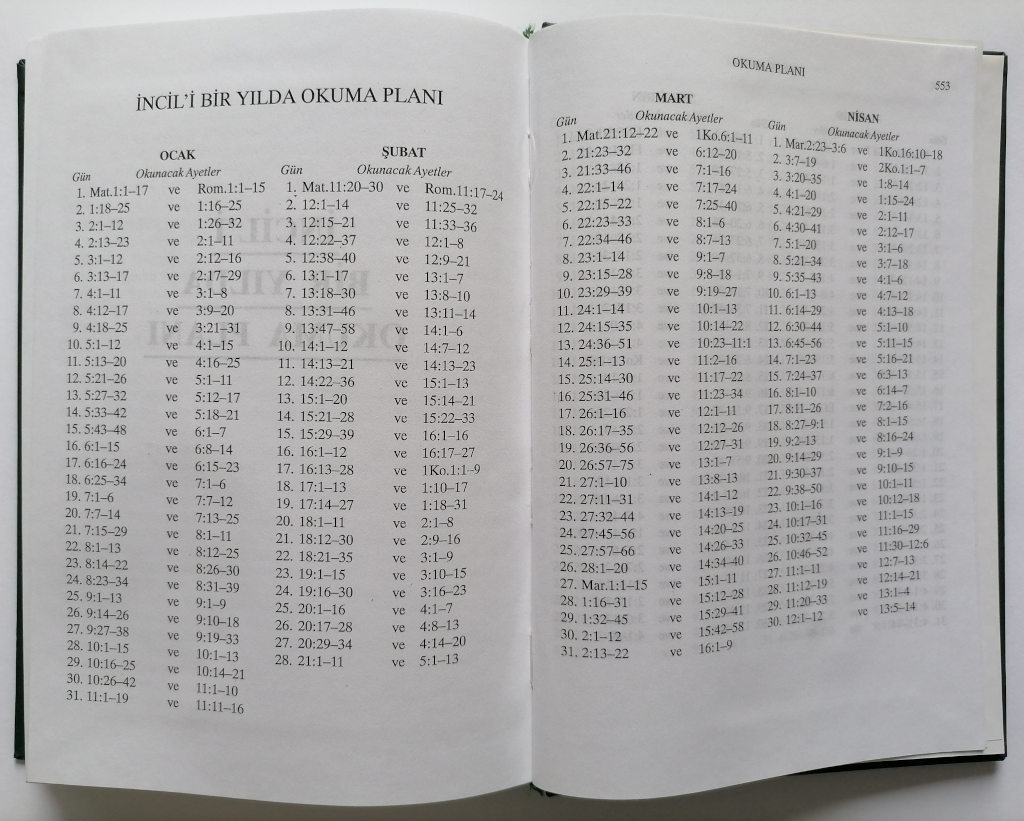 İNCİL'İ BİR YILDA OKUMA PLANI
OCAK
Gün Okunacak Ayetler
1. Mat.1:1–17 ve Rom.1:1–15
2. 1:18–25 ve 1:16–25
3. 2:1–12 ve 1:26–32
4. 2:13–23 ve 2:1–11
5. 3:1–12 ve 2:12–16
6. 3:13–17 ve 2:17–29
7. 4:1–11 ve 3:1–8
8. 4:12–17 ve 3:9–20
9. 4:18–25 ve 3:21–31
10. 5:1–12 ve 4:1–15
11. 5:13–20 ve 4:16–25
12. 5:21–26 ve 5:1–11
13. 5:27–32 ve 5:12–17
14. 5:33–42 ve 5:18–21
15. 5:43–48 ve 6:1–7
16. 6:1–15 ve 6:8–14
17. 6:16–24 ve 6:15–23
18. 6:25–34 ve 7:1–6
19. 7:1–6 ve 7:7–12
20. 7:7–14 ve 7:13–25
21. 7:15–29 ve 8:1–11
22. 8:1–13 ve 8:12–25
23. 8:14–22 ve 8:26–30
24. 8:23–34 ve 8:31–39
25. 9:1–13 ve 9:1–9
26. 9:14–26 ve 9:10–18
27. 9:27–38 ve 9:19–33
28. 10:1–15 ve 10:1–13
29. 10:16–25 ve 10:14–21
30. 10:26–42 ve 11:1–10
31. 11:1–19 ve 11:11–16
ŞUBAT
Gün Okunacak Ayetler
1. Mat.11:20–30 ve Rom.11:17–24
2. 12:1–14 ve 11:25–32
3. 12:15–21 ve 11:33–36
4. 12:22–37 ve 12:1–8
5. 12:38–40 ve 12:9–21
6. 13:1–17 ve 13:1–7
7. 13:18–30 ve 13:8–10
8. 13:31–46 ve 13:11–14
9. 13:47–58 ve 14:1–6
10. 14:1–12 ve 14:7–12
11. 14:13–21 ve 14:13–23
12. 14:22–36 ve 15:1–13
13. 15:1–20 ve 15:14–21
14. 15:21–28 ve 15:22–33
15. 15:29–39 ve 16:1–16
16. 16:1–12 ve 16:17–27
17. 16:13–28 ve 1Ko.1:1–9
18. 17:1–13 ve 1:10–17
19. 17:14–27 ve 1:18–31
20. 18:1–11 ve 2:1–8
21. 18:12–30 ve 2:9–16
22. 18:21–35 ve 3:1–9
23. 19:1–15 ve 3:10–15
24. 19:16–30 ve 3:16–23
25. 20:1–16 ve 4:1–7
26. 20:17–28 ve 4:8–13
27. 20:29–34 ve 4:14–20
28. 21:1–11 ve 5:1–13
OKUMA PLANI 553
MART
Gün Okunacak Ayetler
1. Mat.21:12–22 ve 1Ko.6:1–11
2. 21:23–32 ve 6:12–20
3. 21:33–46 ve 7:1–16
4. 22:1–14 ve 7:17–24
5. 22:15–22 ve 7:25–40
6. 22:23–33 ve 8:1–6
7. 22:34–46 ve 8:7–13
8. 23:1–14 ve 9:1–7
9. 23:15–28 ve 9:8–18
10. 23:29–39 ve 9:19–27
11. 24:1–14 ve 10:1–13
12. 24:15–35 ve 10:14–22
13. 24:36–51 ve 10:23–11:1
14. 25:1–13 ve 11:2–16
15. 25:14–30 ve 11:17–22
16. 25:31–46 ve 11:23–34
17. 26:1–16 ve 12:1–11
18. 26:17–35 ve 12:12–26
19. 26:36–56 ve 12:27–31
20. 26:57–75 ve 13:1–7
21. 27:1–10 ve 13:8–13
22. 27:11–31 ve 14:1–12
23. 27:32–44 ve 14:13–19
24. 27:45–56 ve 14:20–25
25. 27:57–66 ve 14:26–33
26. 28:1–20 ve 14:34–40
27. Mar.1:1–15 ve 15:1–11
28. 1:16–31 ve 15:12–28
29. 1:32–45 ve 15:29–41
30. 2:1–12 ve 15:42–58
31. 2:13–22 ve 16:1–9
NİSAN
Gün Okunacak Ayetler
1. Mar.2:23–3:6 ve 1Ko.16:10–18
2. 3:7–19 ve 2Ko.1:1–7
3. 3:20–35 ve 1:8–14
4. 4:1–20 ve 1:15–24
5. 4:21–29 ve 2:1–11
6. 4:30–41 ve 2:12–17
7. 5:1–20 ve 3:1–6
8. 5:21–34 ve 3:7–18
9. 5:35–43 ve 4:1–6
10. 6:1–13 ve 4:7–12
11. 6:14–29 ve 4:13–18
12. 6:30–44 ve 5:1–10
13. 6:45–56 ve 5:11–15
14. 7:1–23 ve 5:16–21
15. 7:24–37 ve 6:3–13
16. 8:1–10 ve 6:14–7
17. 8:11–26 ve 7:2–16
18. 8:27–9:1 ve 8:1–15
19. 9:2–13 ve 8:16–24
20. 9:14–29 ve 9:1–9
21. 9:30–37 ve 9:10–15
22. 9:38–50 ve 10:1–11
23. 10:1–16 ve 10:12–18
24. 10:17–31 ve 11:1–15
25. 10:32–45 ve 11:16–29
26. 10:46–52 ve 11:30–12:6
27. 11:1–11 ve 12:7–13
28. 11:12–19 ve 12:14–21
29. 11:20–33 ve 13:1–4
30. 12:1–12 ve 13:5–14